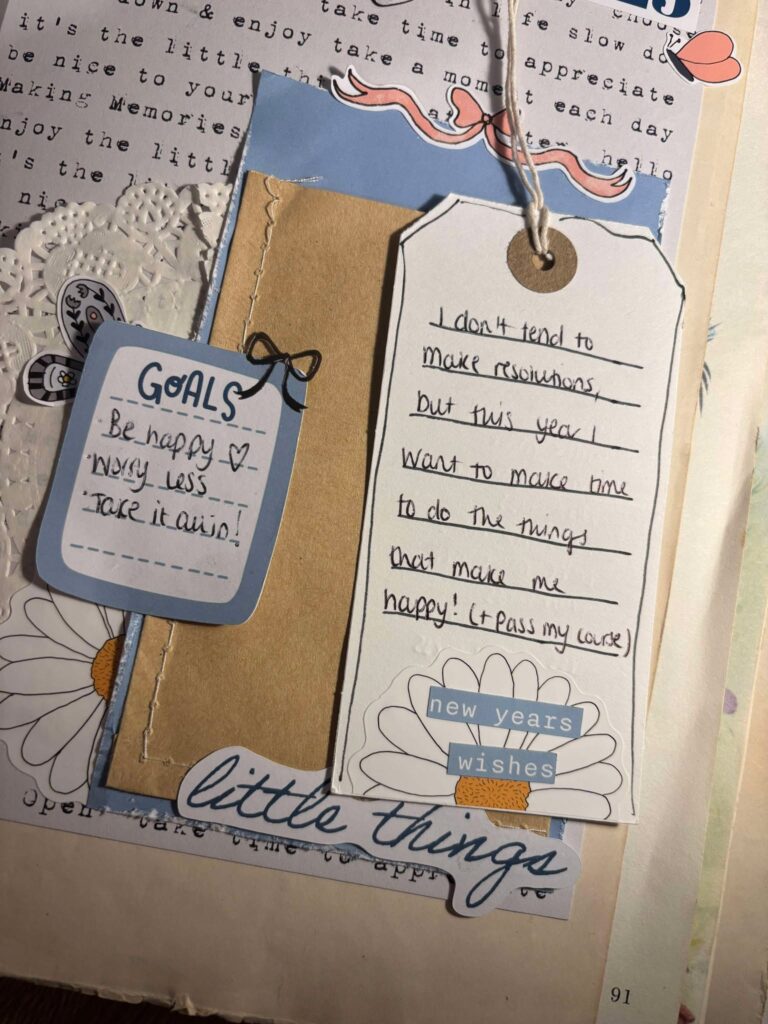 choose
in life slow do
take time to appreciate
own & enjoy take a moment each day
it's the little thi
hello
be nice to your
Making Memories
njoy the littl
t's the li
ni
GOALS
Be happy ♡
·Worry less
·Take it all in!
I don't tend to
make resolutions,
but this year I
want to make time
to do the things
that make me
happy! (+ pass my course)
new years
wishes
little things
open take time to appr te
91